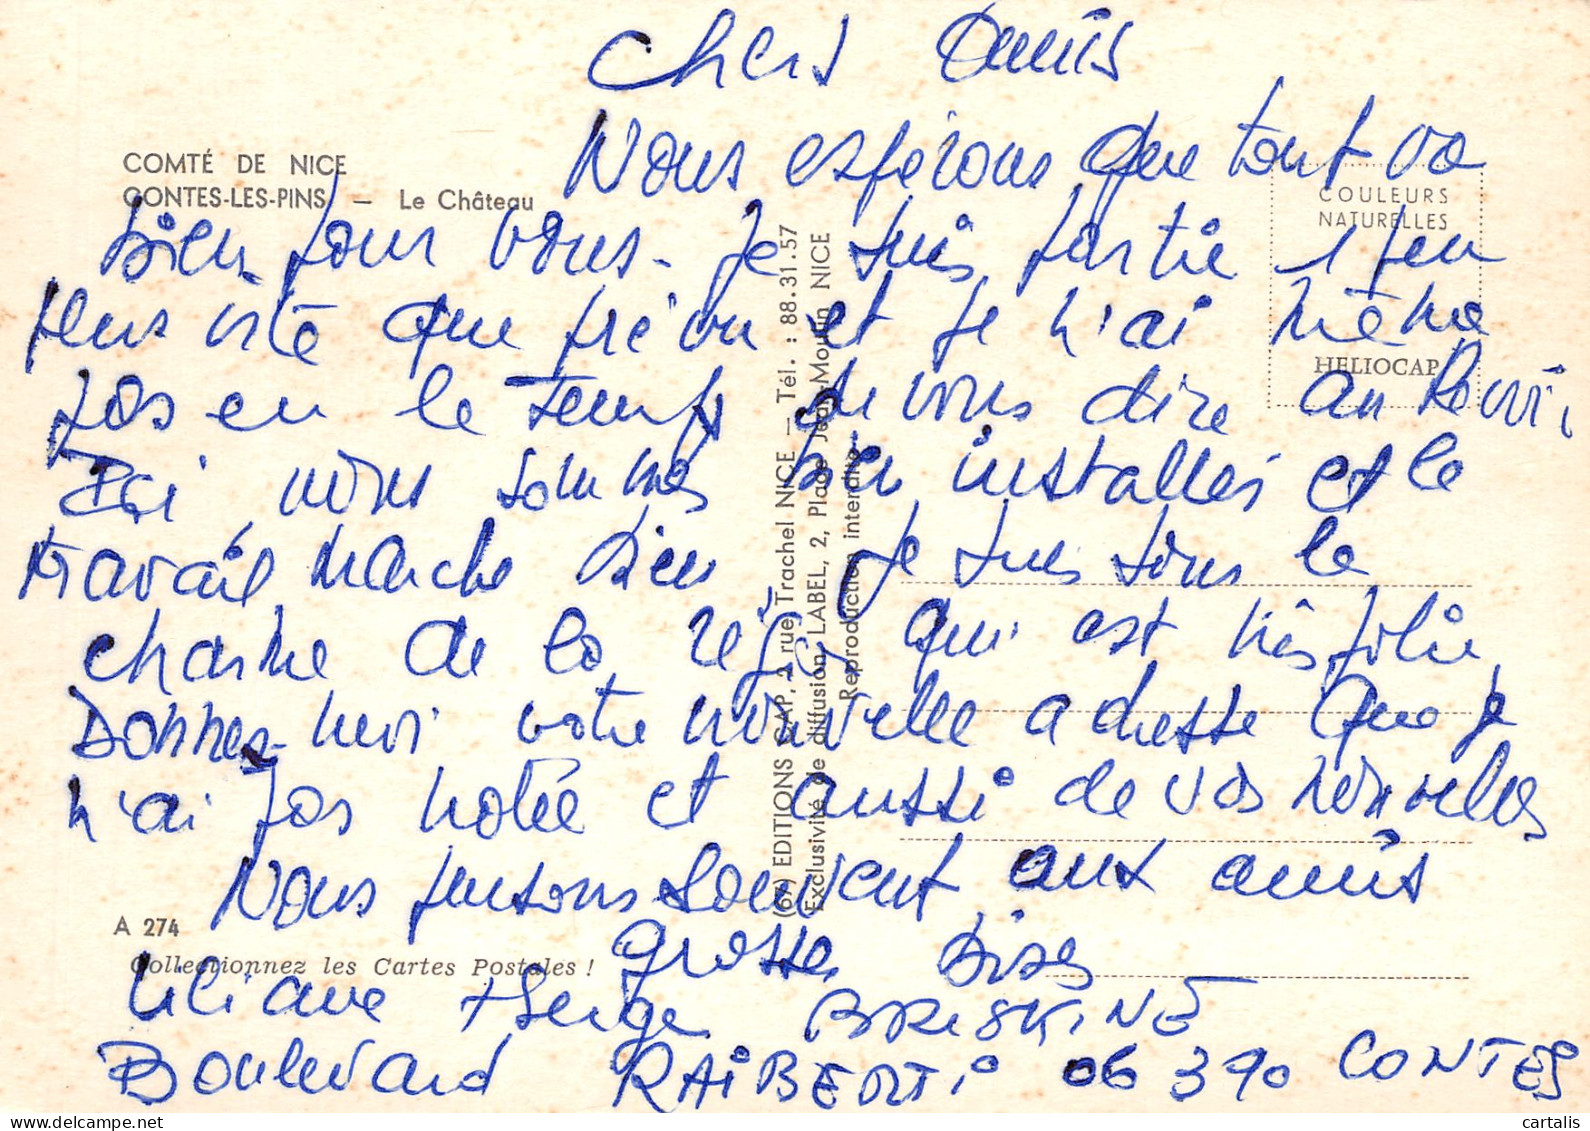 Chers Amis
Nous espérons que tout va
COMTÉ DE NICE
CONTES-LES-PINS — Le Château
COULEURS
NATURELLES
bien pour vous - Je suis partie 1 peu
plus vite que prévu et je n'ai même
HELIOCAP
pas eu le temps de vous dire au revoir
Ici nous sommes bien installés et le
travail marche bien, je suis sous le
charme de la rég. qui est très jolie,
Donnez-moi votre nouvelle adresse que je
n'ai pas notée et aussi de vos nouvelles
Nous pensons souvent aux amis
grosses Bises
Liliane + Serge BRISKINE
Boulevard RAiBERTi 06 390 CONTES
(67) EDITIONS CAP, 2 rue Trachel NICE — Tél. : 88.31.57
Exclusivité de diffusion LABEL, 2, Place Jean-Moulin NICE
Reproduction interdite
A 274
Collectionnez les Cartes Postales !
cartalis